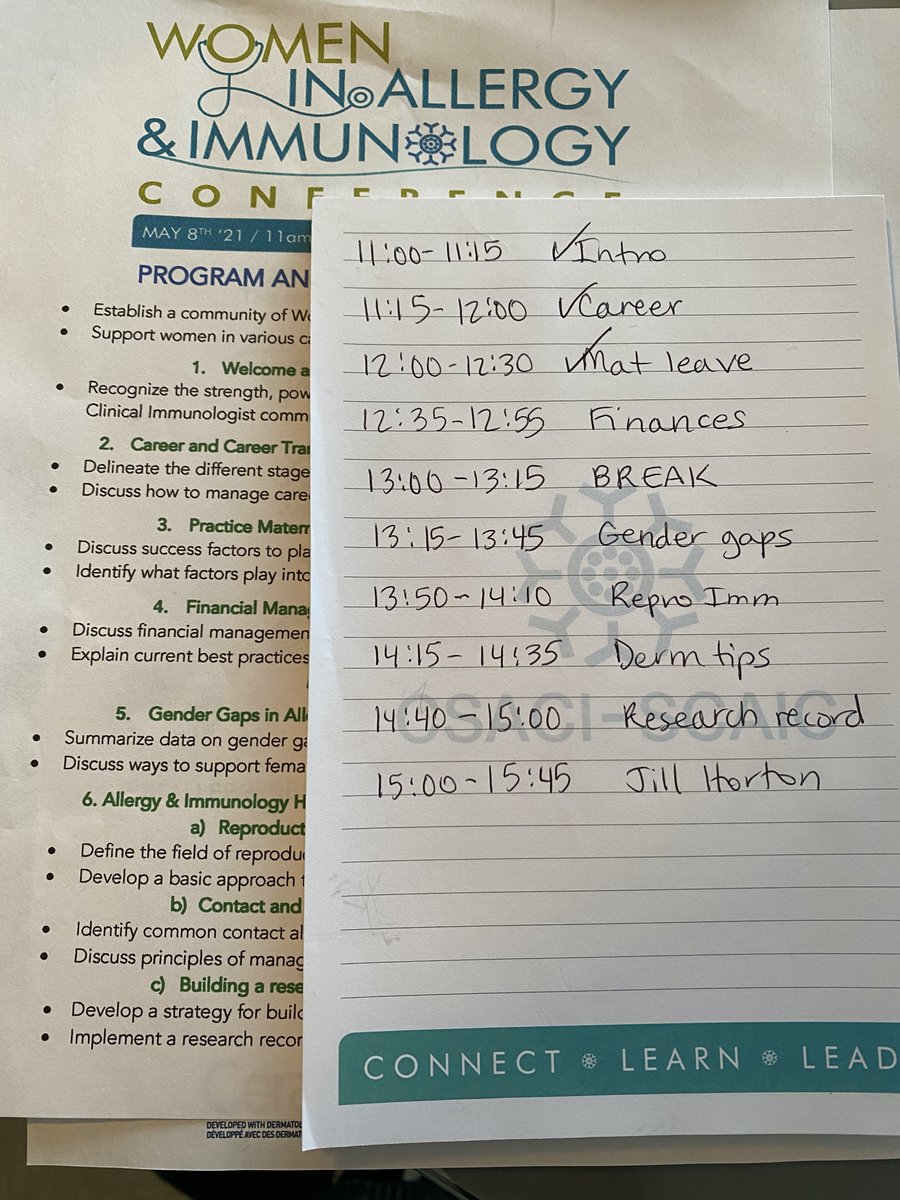 WOMEN
IN ALLERGY
& IMMUNOLOGY
CONFERENCE
MAY 8TH '21 / 11am
PROGRAM AN
• Establish a community of
• Support women in various
1. Welcome
• Recognize the strength,
Clinical Immunologist
2. Career and Career
• Delineate the different stage
• Discuss how to manage
3. Practice
• Discuss success factors to
• Identify what factors play into
4. Financial
• Discuss financial
• Explain current best practices
5. Gender Gaps in
• Summarize data on gender
• Discuss ways to support
6. Allergy & Immunology H
a) Reproduct
• Define the field of
• Develop a basic approach
b) Contact and
• Identify common contact al
• Discuss principles of
c) Building a rese
• Develop a strategy for
• Implement a research recor
DEVELOPED WITH
DÉVELOPPÉ AVEC DES
11:00-11:15 ✓Intro
11:15-12:00 ✓Career
12:00-12:30 ✓Mat leave
12:35-12:55 Finances
13:00-13:15 BREAK
13:15-13:45 Gender gaps
13:50-14:10 Repro Imm
14:15-14:35 Derm tips
14:40-15:00 Research record
15:00-15:45 Jill Horton
CSACI-SCAIC
CONNECT LEARN LEAD